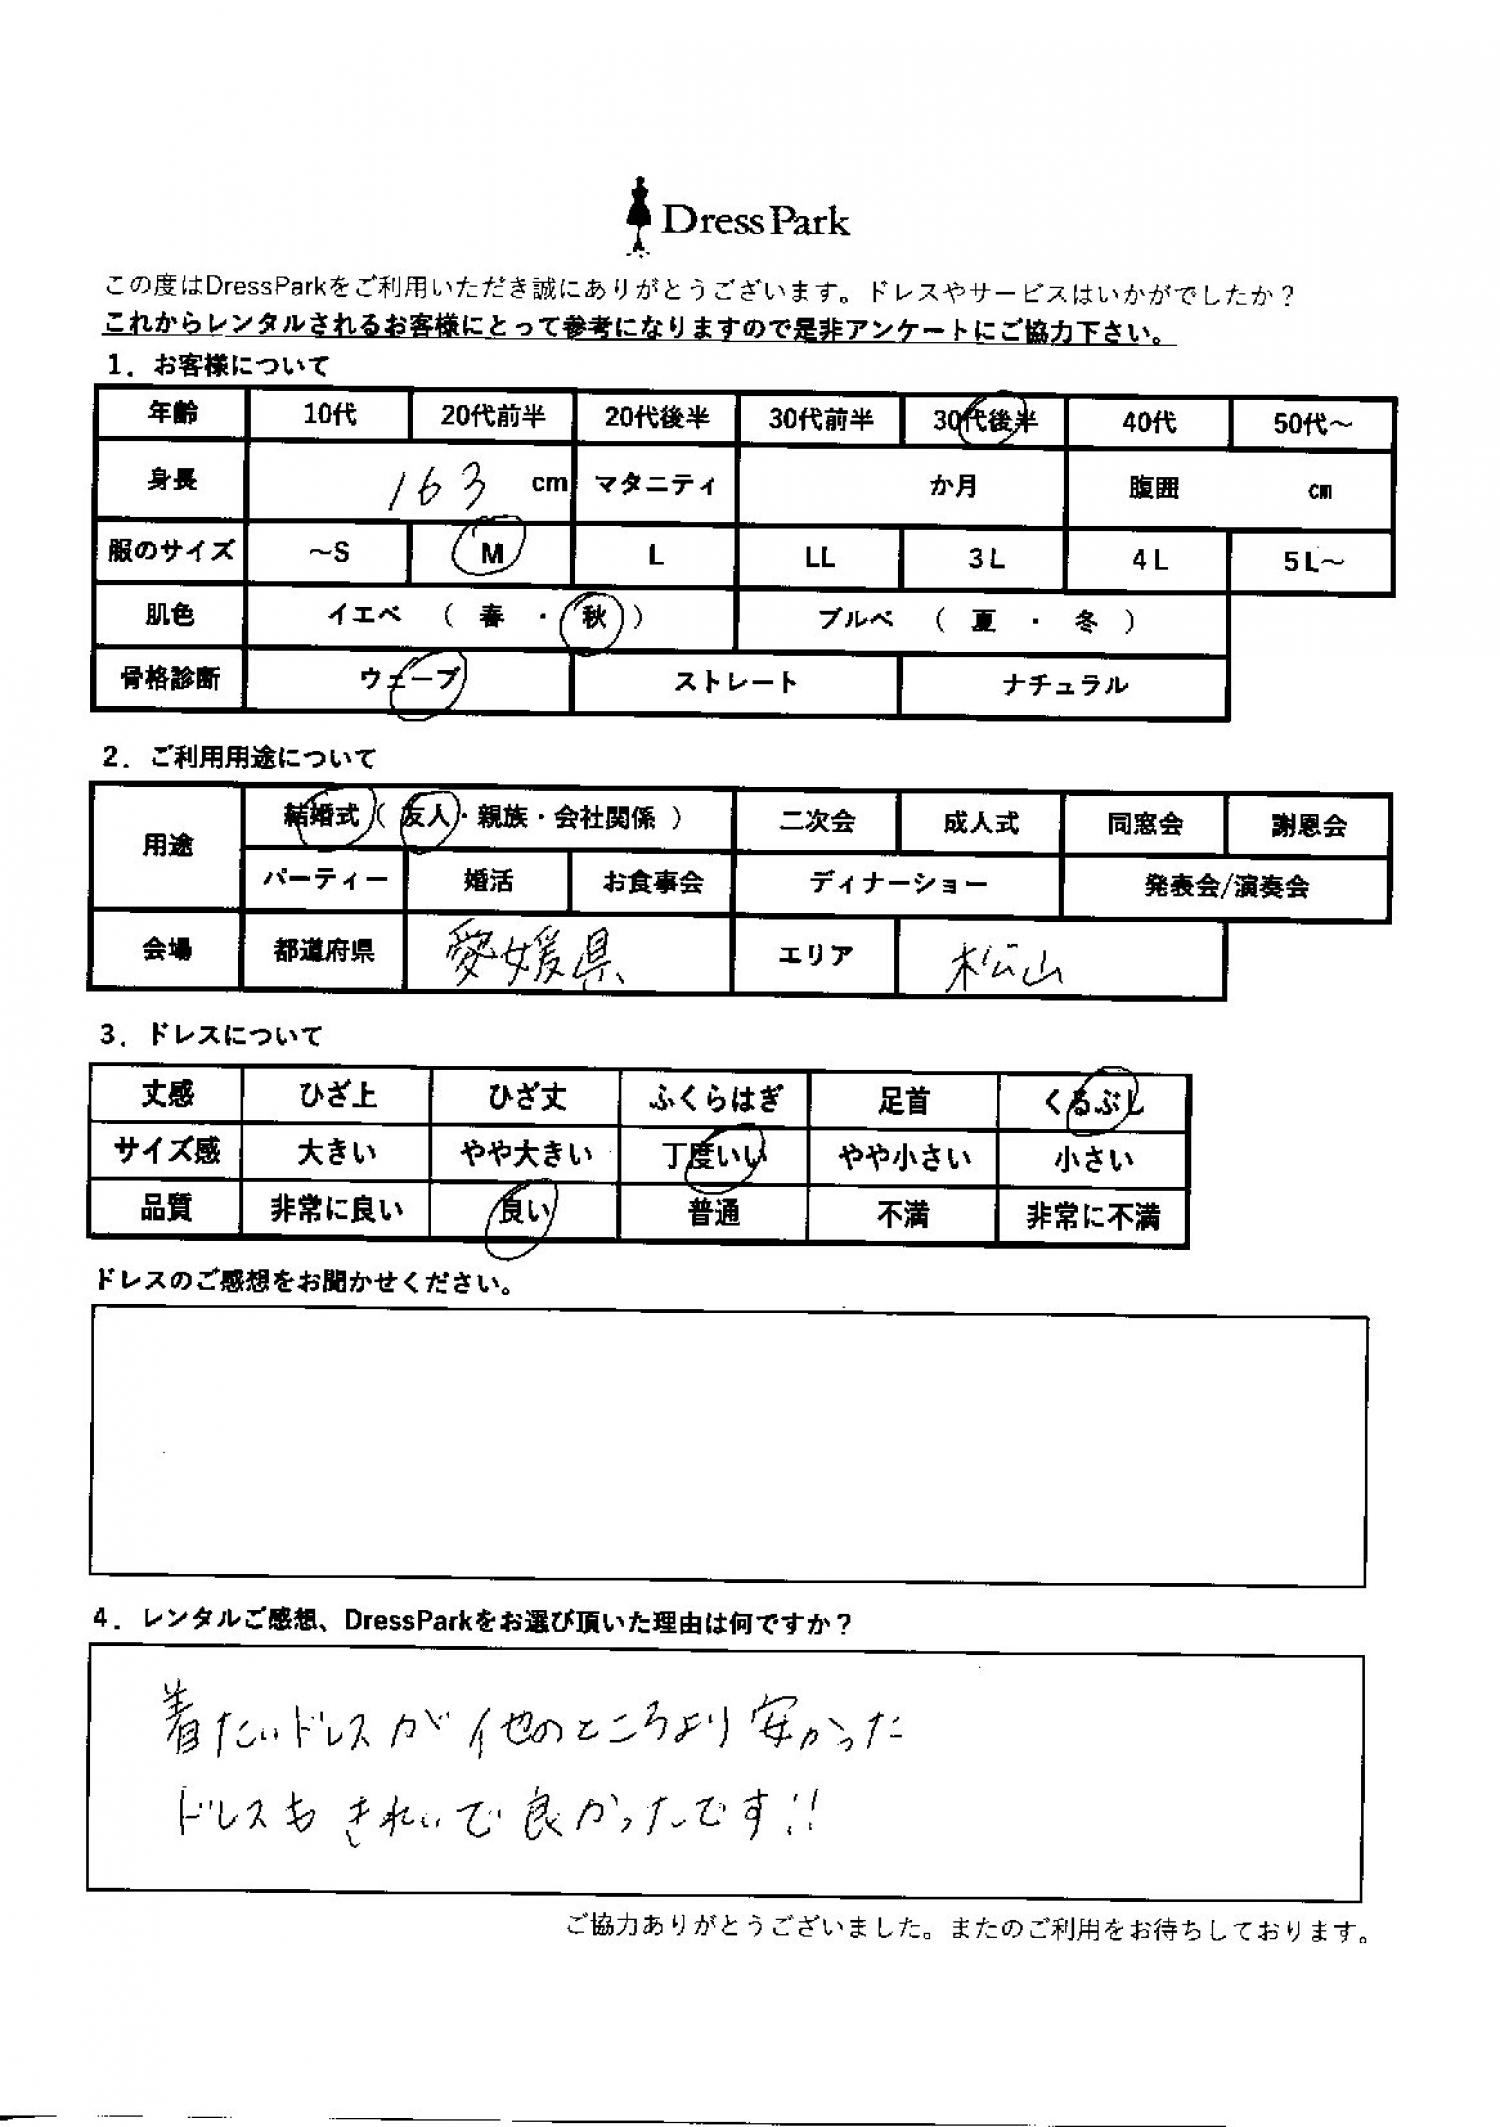 Dress Park
この度はDressParkをご利用いただき誠にありがとうございます。ドレスやサービスはいかがでしたか？
これからレンタルされるお客様にとって参考になりますので是非アンケートにご協力下さい。
1．お客様について
年齢 10代 20代前半 20代後半 30代前半 30代後半 40代 50代～
身長 163 cm マタニティ か月 腹囲 cm
服のサイズ ～S M L LL 3L 4L 5L～
肌色 イエベ （ 春 ・ 秋 ） ブルベ （ 夏 ・ 冬 ）
骨格診断 ウェーブ ストレート ナチュラル
2．ご利用用途について
用途 結婚式（ 友人・親族・会社関係 ） 二次会 成人式 同窓会 謝恩会
パーティー 婚活 お食事会 ディナーショー 発表会/演奏会
会場 都道府県 愛媛県 エリア 松山
3．ドレスについて
丈感 ひざ上 ひざ丈 ふくらはぎ 足首 くるぶし
サイズ感 大きい やや大きい 丁度いい やや小さい 小さい
品質 非常に良い 良い 普通 不満 非常に不満
ドレスのご感想をお聞かせください。
4．レンタルご感想、DressParkをお選び頂いた理由は何ですか？
着たいドレスが他のところより安かった
ドレスもきれいで良かったです!!
ご協力ありがとうございました。またのご利用をお待ちしております。